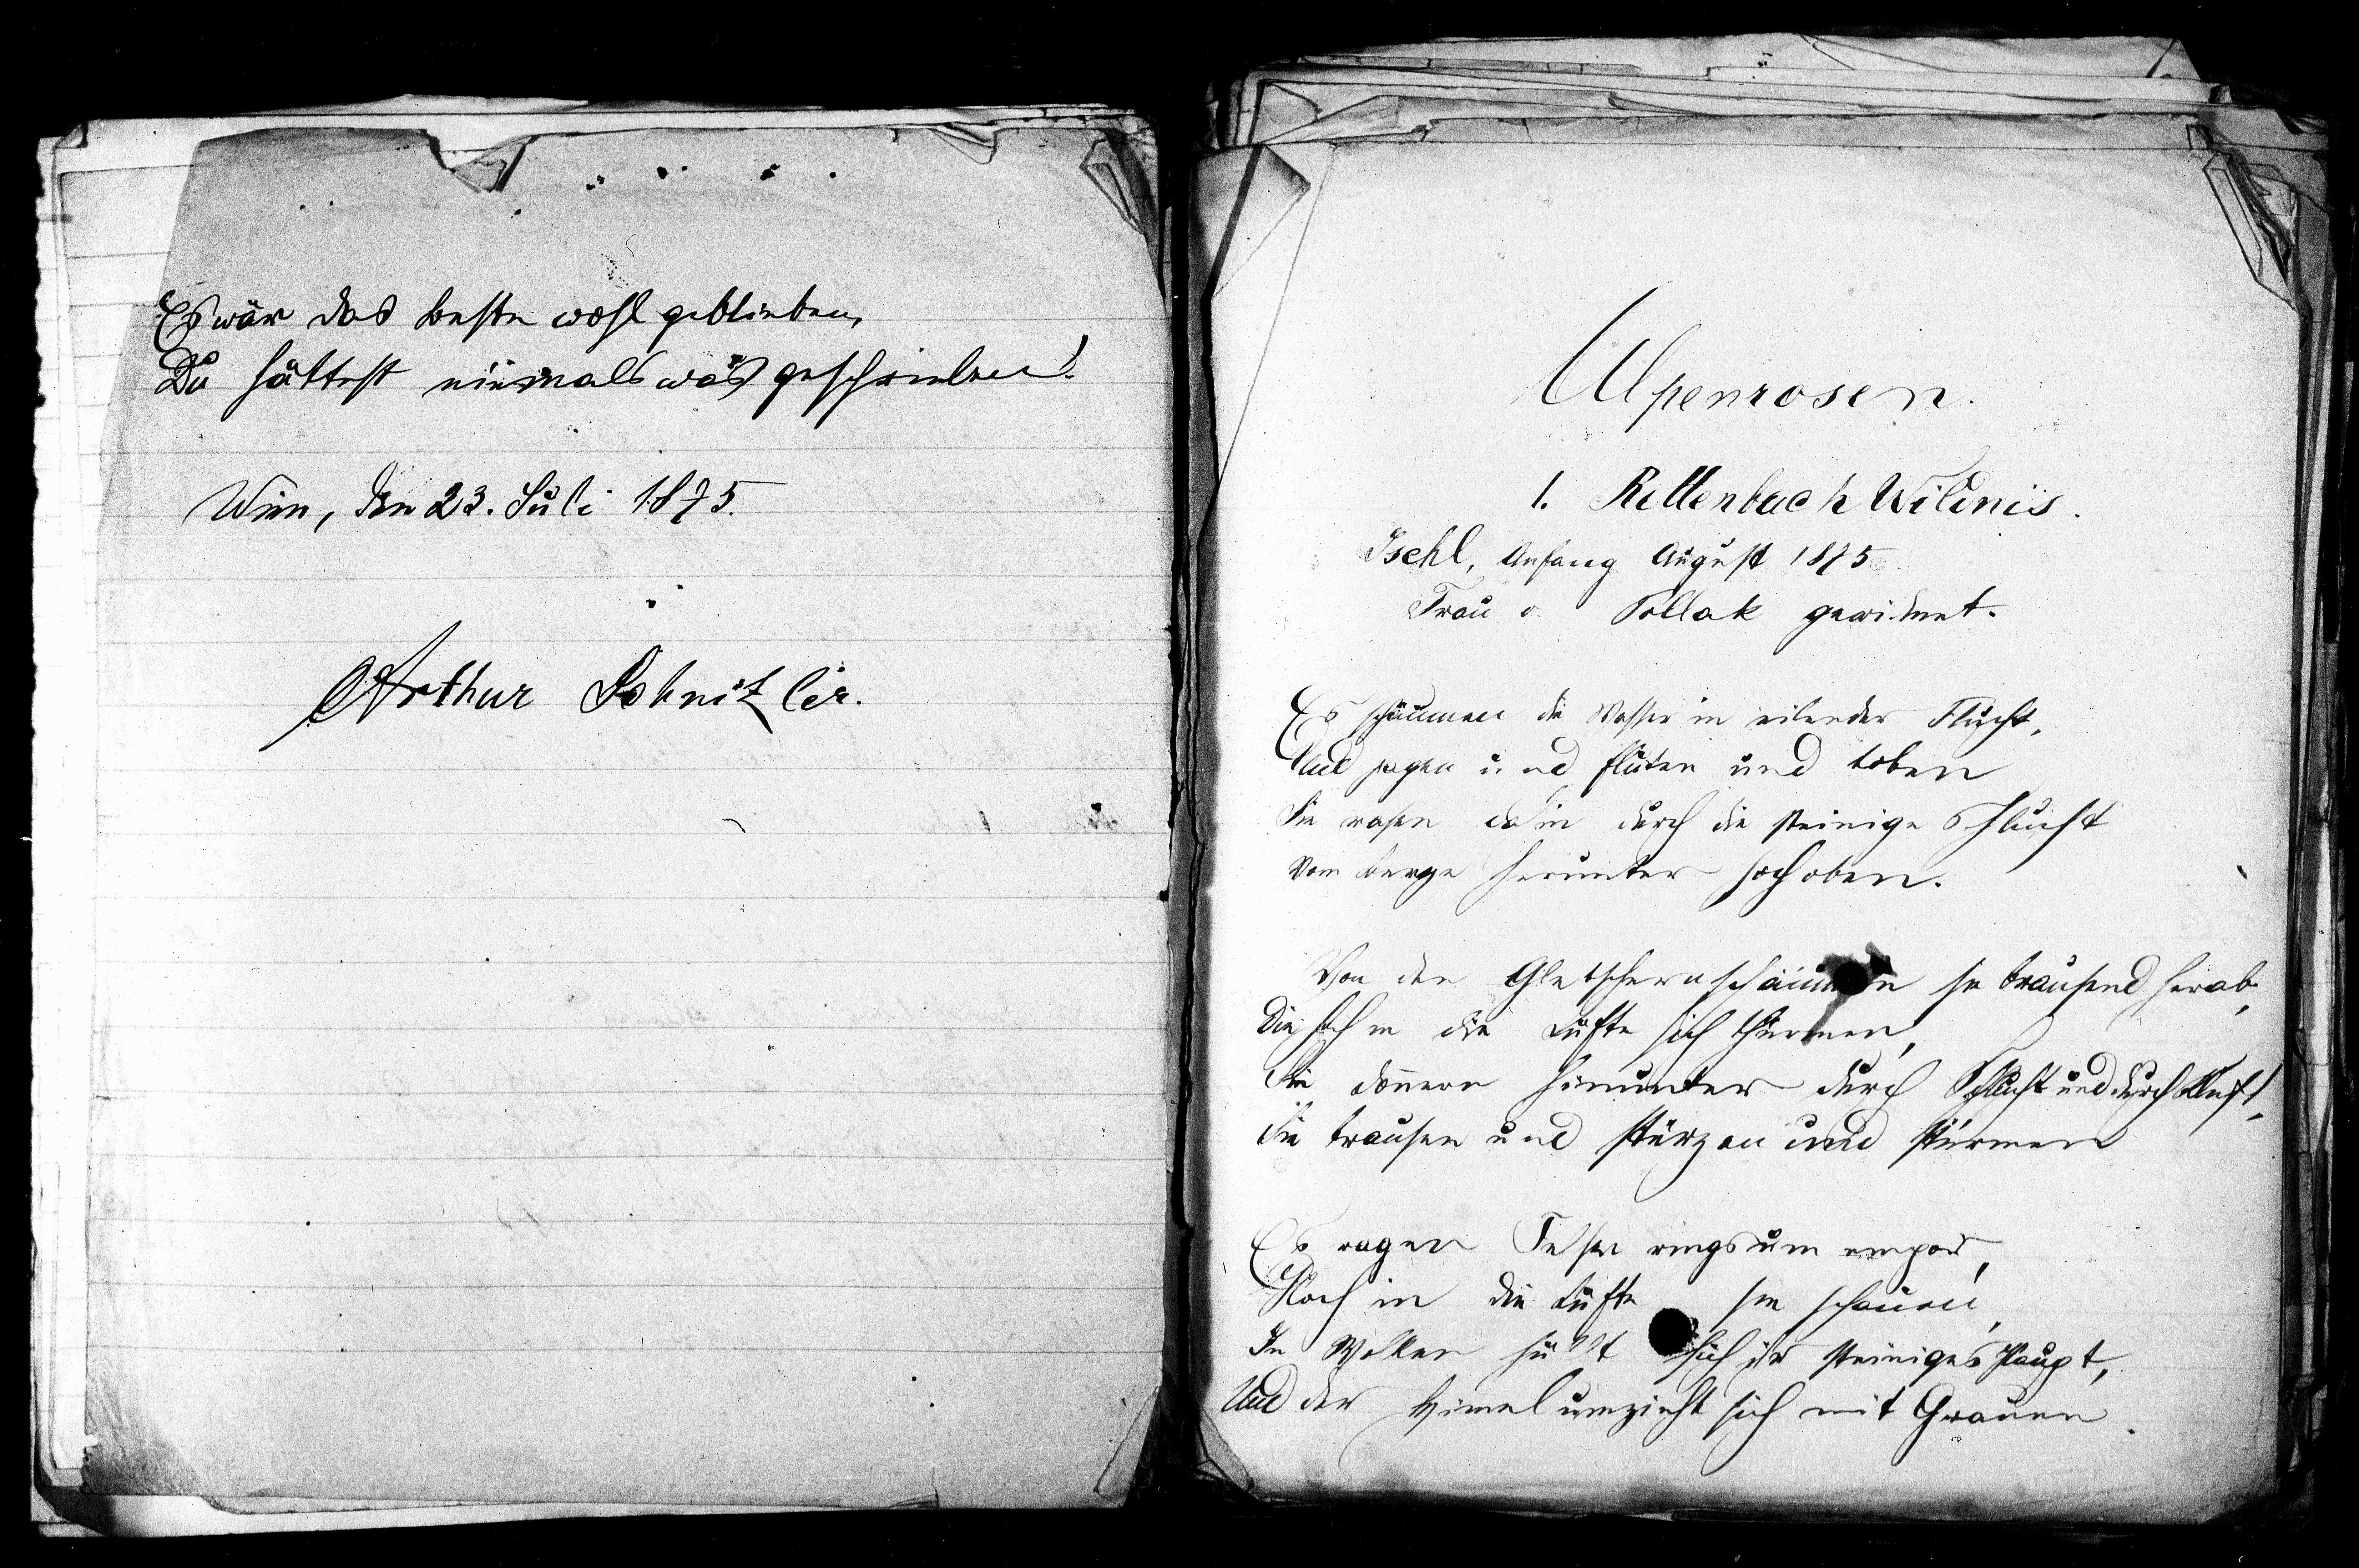 Es wär das beste wohl geblieben,
Du hättest niemals was geschrieben!
Wien, den 23. Juli 1875.
Arthur Schnitzler.
Alpenrosen.
1. Rettenbach Wildnis.
Ischl, Anfang August 1875
Frau v. Pollak gewidmet.
Es schäumen die Wasser in eilender Flucht,
Und jagen und fluten und toben
Sie rasen dahin durch die steinige Schlucht
Vom Berge herunter hoch oben.
Von den Gletschern schäumen sie brausend herab,
Die hoch in die Lüfte sich thürmen,
Sie donnern hinunter durch Schlucht und durch Kluft,
Sie brausen und stürzen und stürmen
Es ragen Felsen ringsum empor,
Hoch in die Lüfte sie schauen,
In Wolken hüllt sich ihr steiniges Haupt,
Und der Himel umzieht sich mit Grauen.